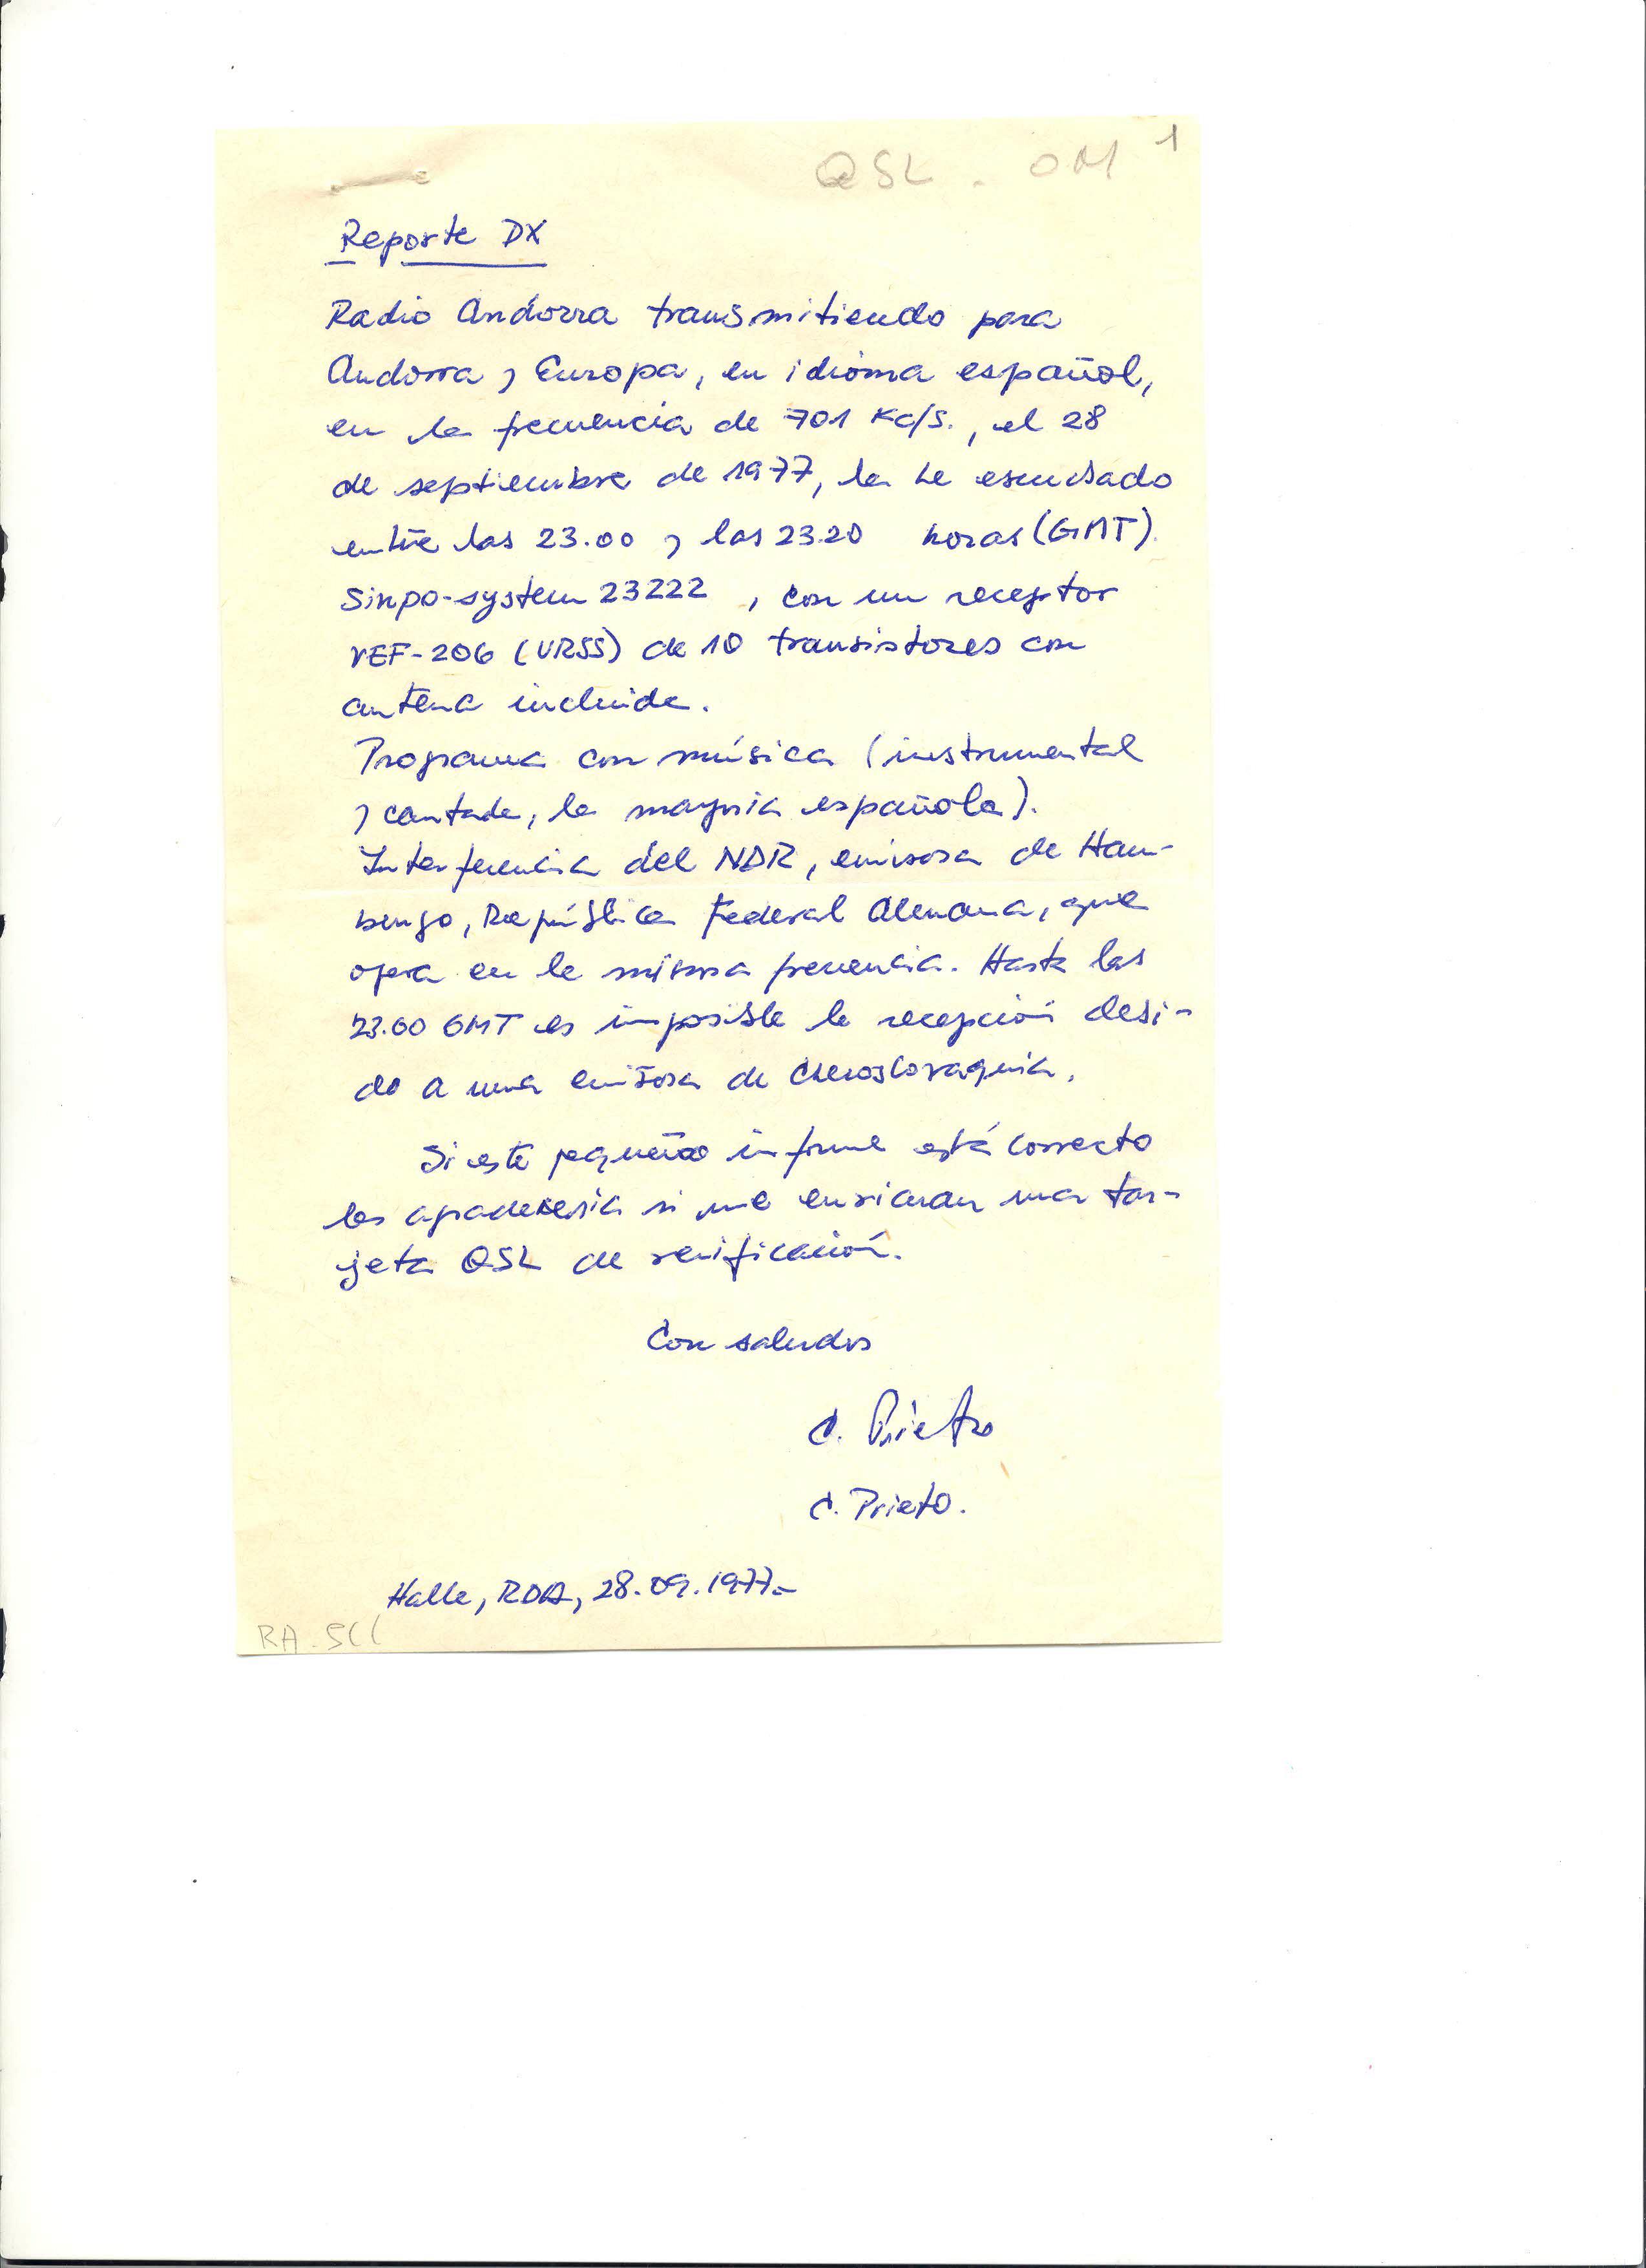 QSL - OM 1
Reporte DX
Radio Andorra transmitiendo para
Andorra y Europa, en idioma español,
en la frecuencia de 701 Kc/s., el 28
de septiembre de 1977, la he escuchado
entre las 23.00 y las 23.20 horas (GMT).
Sinpo-system 23222 , con un receptor
VEF-206 (URSS) de 10 transistores con
antena incluida.
Programa con música (instrumental
y cantada, la mayoría española).
Interferencia del NDR, emisora de Ham-
burgo, República Federal Alemana, que
opera en la misma frecuencia. Hasta las
23.00 GMT es imposible la recepción debi-
do a una emisora de Checoslovaquia.
Si este pequeño informe está correcto
les agradecería si me enviaran una tar-
jeta QSL de verificación.
Con saludos
C. Prieto
C. Prieto.
Halle, RDA, 28.09.1977.-
RA.